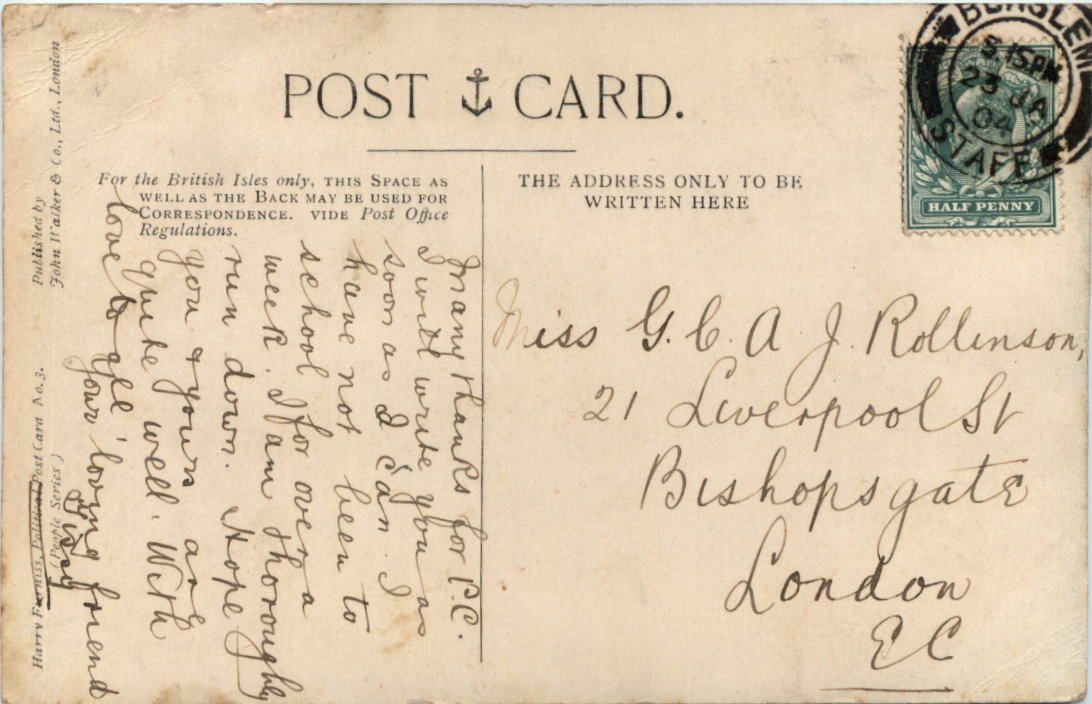 POST CARD.
For the British Isles only, THIS SPACE AS
WELL AS THE BACK MAY BE USED FOR
CORRESPONDENCE. VIDE Post Office
Regulations.
THE ADDRESS ONLY TO BE
WRITTEN HERE
BURSLEM
5.15PM
23 JA
04
STAFF
HALF PENNY
Many thanks for P.C.
I will write you as
soon as I can. I
have not been to
school for over a
week. I am thoroughly
run down. Hope
you & yours are
quite well. With
love to all
your loving friend
Miss G. C. A J. Rollinson,
21 Liverpool St
Bishopsgate
London
E C
Published by
John Walker & Co., Ltd., London
Harry Furniss, Political Post Card No. 3.
(People Series)